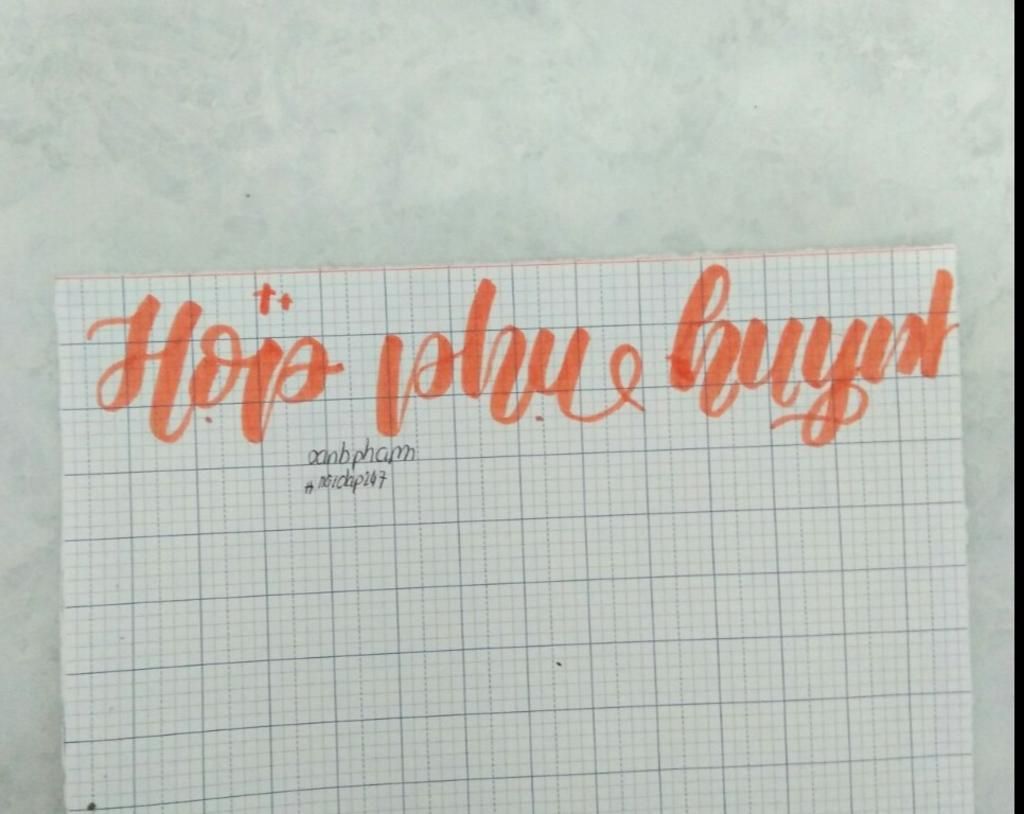 Họp phụ huynh
oanhpham
#hoidap247